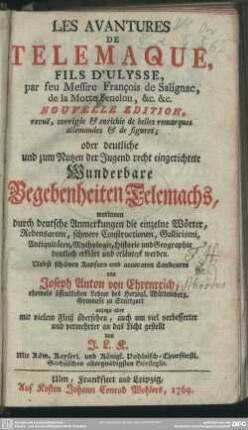 LES AVANTURES
DE
TELEMAQUE,
FILS D'ULYSSE,
par feu Messire François de Salignac,
de la Motte Fenelon, &c. &c.
NOUVELLE EDITION,
revuë, corrigée & enrichie de belles remarques
allemandes & de figures;
oder deutliche
und zum Nutzen der Jugend recht eingerichtete
Wunderbare
Begebenheiten Telemachs,
worinnen
durch deutsche Anmerkungen die einzelne Wörter,
Redensarten, schwere Constructionen, Gallicismi,
Antiquitäten, Mythologie, Historie und Geographie
deutlich erklärt und erläutert werden.
Nebst schönen Kupfern und accuraten Landcarte
von
Joseph Anton von Ehrenreich,
ehemals öffentlichen Lehrer des Herzogl. Würtemberg.
Gymnasii zu Stuttgart
anjezo aber
mit vielem Fleiß übersehen, auch um viel verbesserter
und vermehrter an das Licht gestellt
von
J. L. K.
Mit Röm. Kayserl. und Königl. Pohlnisch-Churfürstl.
Sächsischen allergnädigsten Privilegiis.
Ulm, Frankfurt und Leipzig,
Auf Kosten Johann Conrad Wohlers, 1769.